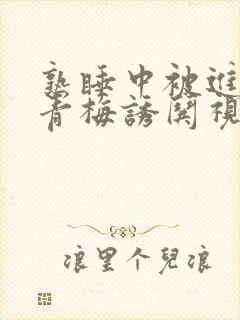 熟睡中被進
青梅誘闋視
浪里个兒浪